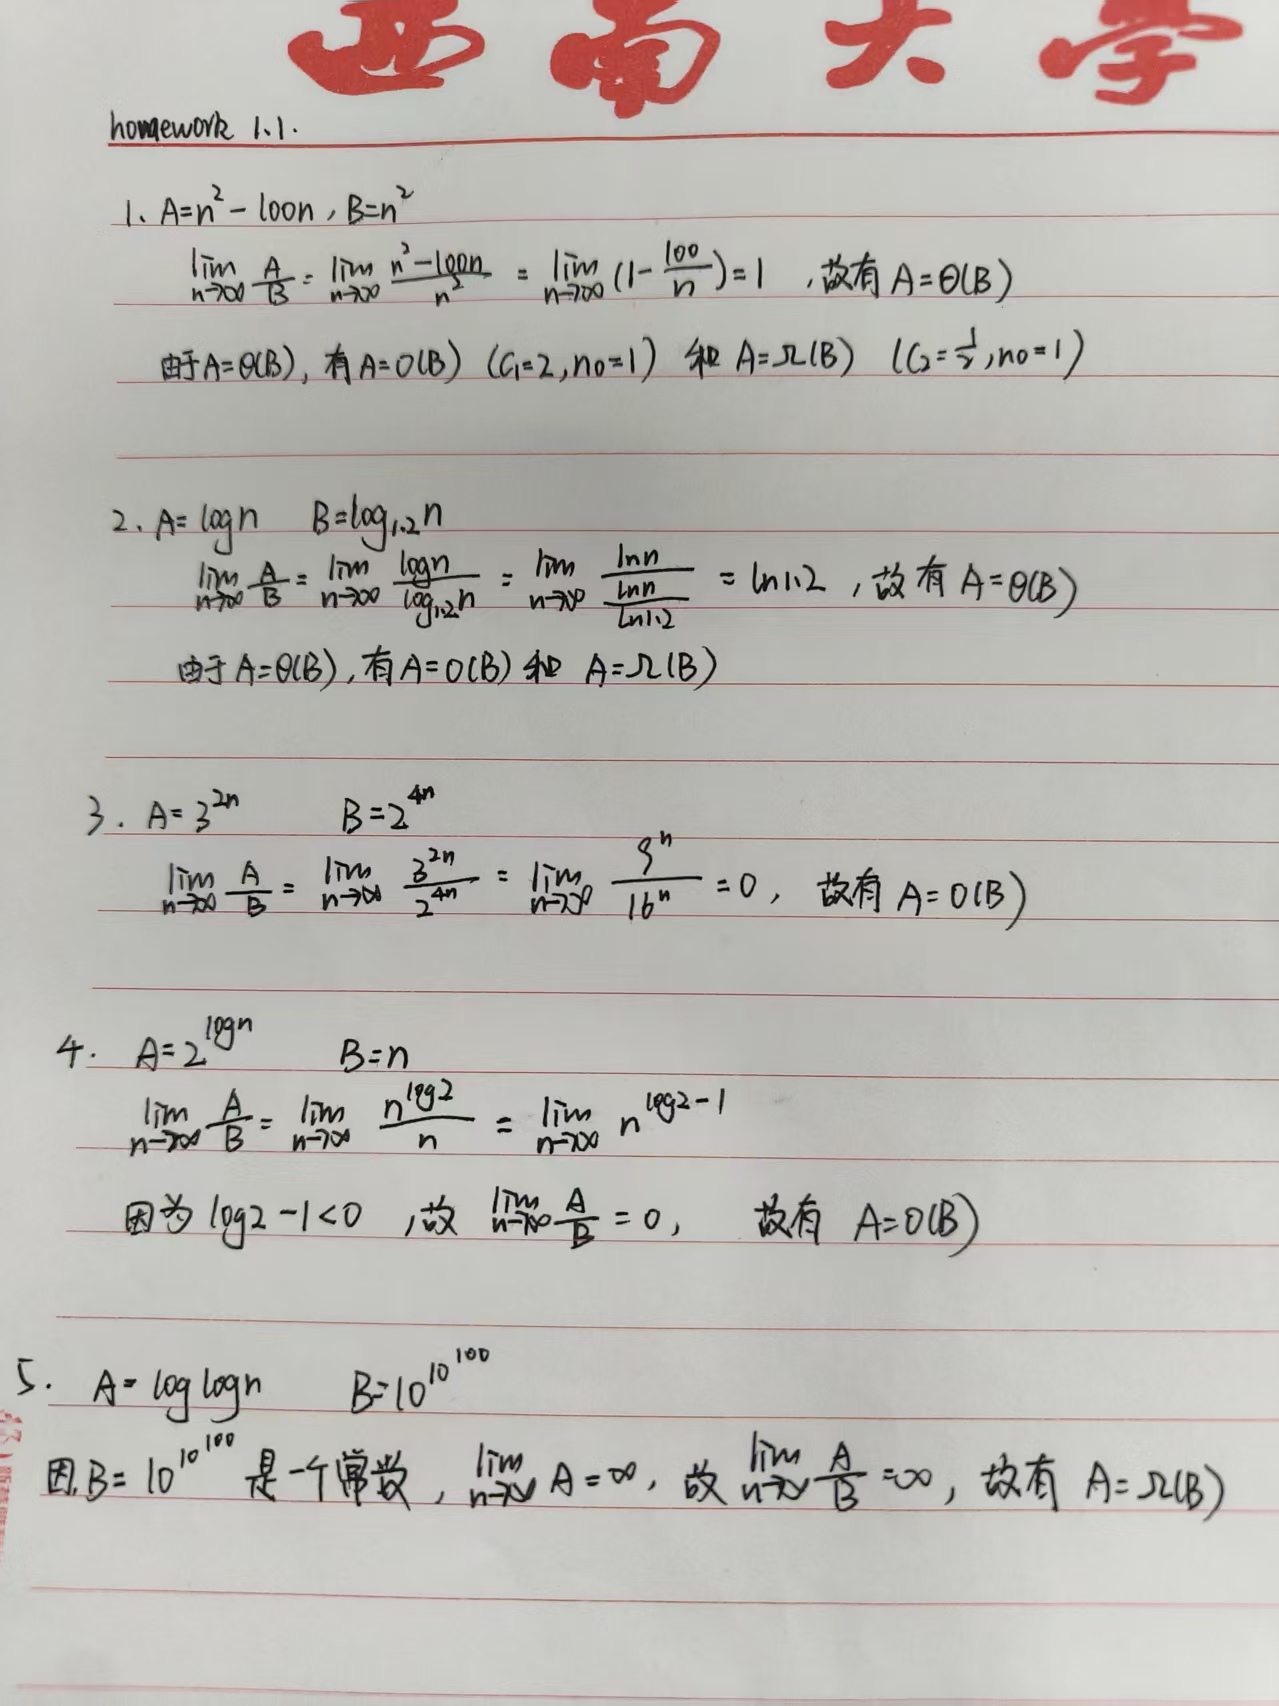 西南大学
homework 1.1.
1、A=n²-100n，B=n²
lim n→∞ A/B = lim n→∞ (n²-100n)/n² = lim n→∞ (1-100/n)=1，故有 A=Θ(B)
由于A=Θ(B)，有A=O(B) (C₁=2,n₀=1) 和 A=Ω(B) (C₂=1/2,n₀=1)
2、A=logn B=log₁.₂n
lim n→∞ A/B = lim n→∞ logn/log₁.₂n = lim n→∞ lnn/(lnn/ln1.2) = ln1.2，故有 A=Θ(B)
由于A=Θ(B)，有A=O(B)和 A=Ω(B)
3. A=3^2n B=2^4n
lim n→∞ A/B = lim n→∞ 3^2n/2^4n = lim n→∞ 9^n/16^n =0，故有 A=O(B)
4. A=2^logn B=n
lim n→∞ A/B = lim n→∞ n^log2/n = lim n→∞ n^(log2-1)
因为 log2-1<0，故 lim n→∞ A/B =0，故有 A=O(B)
5. A=loglogn B=10^10^100
因B=10^10^100 是一个常数，lim n→∞ A=∞，故 lim n→∞ A/B=∞，故有 A=Ω(B)